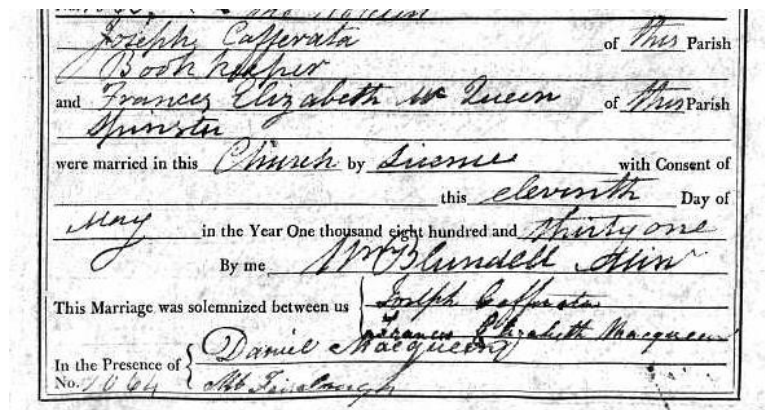 Joseph Cafferata of this Parish
Book keeper
and Frances Elizabeth Mc Queen of this Parish
Spinster
were married in this Church by Licence with Consent of
this eleventh Day of
May in the Year One thousand eight hundred and thirty one
By me Wm Blundell
This Marriage was solemnized between us { Joseph Cafferata
Frances Elizabeth Macqueen
In the Presence of { Daniel Macqueen
No. 1064